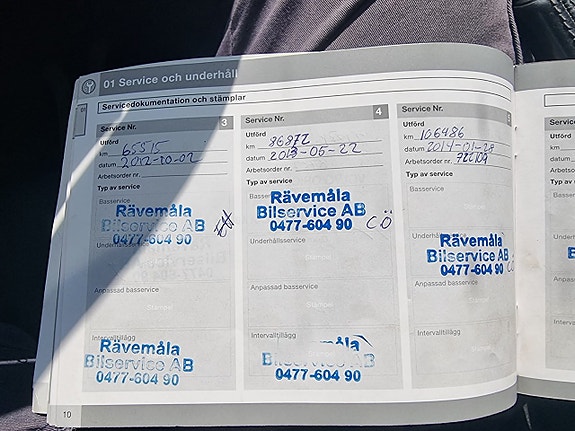 01 Service och underhåll
Servicedokumentation och stämplar
Service Nr. 3
Utförd
km 65515
datum 2012-20-02
Arbetsorder nr.
Typ av service
Basservice
Rävemåla
Bilservice AB
0477-604 90
Underhållsservice
Anpassad basservice
Intervalltillägg
Rävemåla
Bilservice AB
0477-604 90
Service Nr. 4
Utförd
km 86872
datum 2013-05-22
Arbetsorder nr.
Typ av service
Basservice
Rävemåla
Bilservice AB
0477-604 90 CÖ
Underhållsservice
Stämpel
Anpassad basservice
Stämpel
Intervalltillägg
Rävemåla
Bilservice AB
0477-604 90
Service Nr.
Utförd
km 106486
datum 2014-01-28
Arbetsorder nr.
Typ av service
Basservice
Underhållsservice
Rävemåla
Bilservice AB
0477-604 90
Anpassad basservice
Stämpel
Intervalltillägg
10